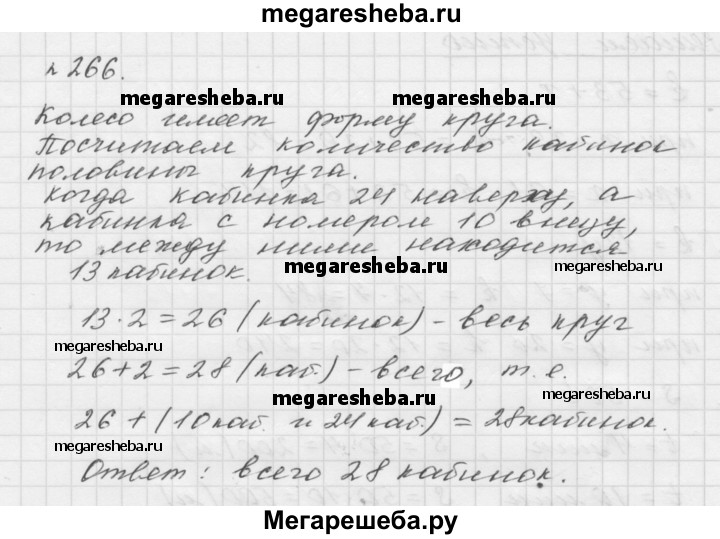 megaresheba.ru
№ 266.
megaresheba.ru megaresheba.ru
Колесо имеет форму круга.
Посчитаем количество кабинок
половины круга.
Когда кабинка 24 наверху, а
кабинка с номером 10 внизу,
то между ними находится
13 кабинок.
megaresheba.ru megaresheba.ru
13·2=26 (кабинок) - весь круг
megaresheba.ru megaresheba.ru
26+2=28 (каб.) - всего, т.е.
megaresheba.ru
26 + (10каб. и 24каб.) = 28кабинок.
megaresheba.ru megaresheba.ru
Ответ: всего 28 кабинок.
Мегарешеба.ру